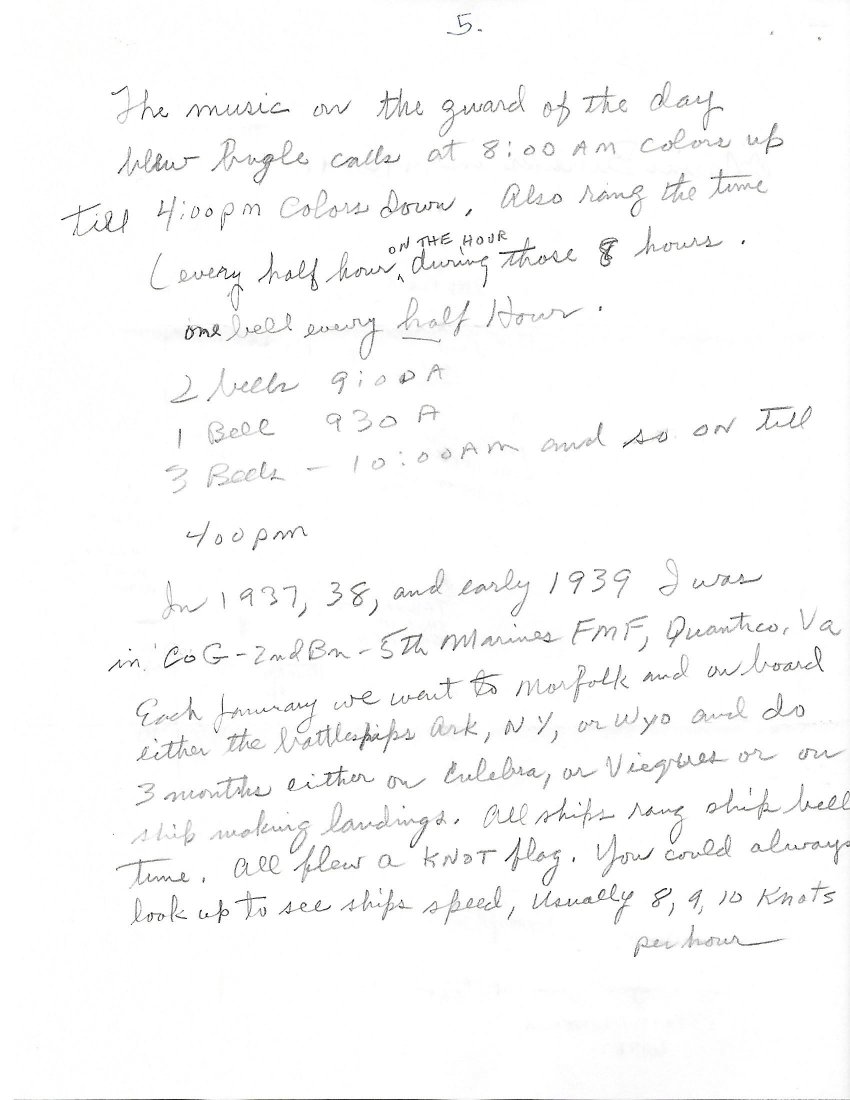 5.
The music on the guard of the day
blew bugle calls at 8:00 AM colors up
till 4:00pm Colors Down. Also rang the time
(every half hour ON THE HOUR during those 8 hours.
one bell every half Hour.
2 bells 9:00 A
1 Bell 930 A
3 Bells - 10:00 AM and so on till
400pm
In 1937, 38, and early 1939 I was
in Co G - 2nd Bn - 5th Marines FMF, Quantico, Va
Each January we went to Norfolk and on board
either the battleships Ark, NY, or Wyo and do
3 months either on Culebra, or Vieques or on
ship making landings. All ships rang ship bell
time. All flew a KNOT flag. You could always
look up to see ships speed, Usually 8, 9, 10 Knots
per hour